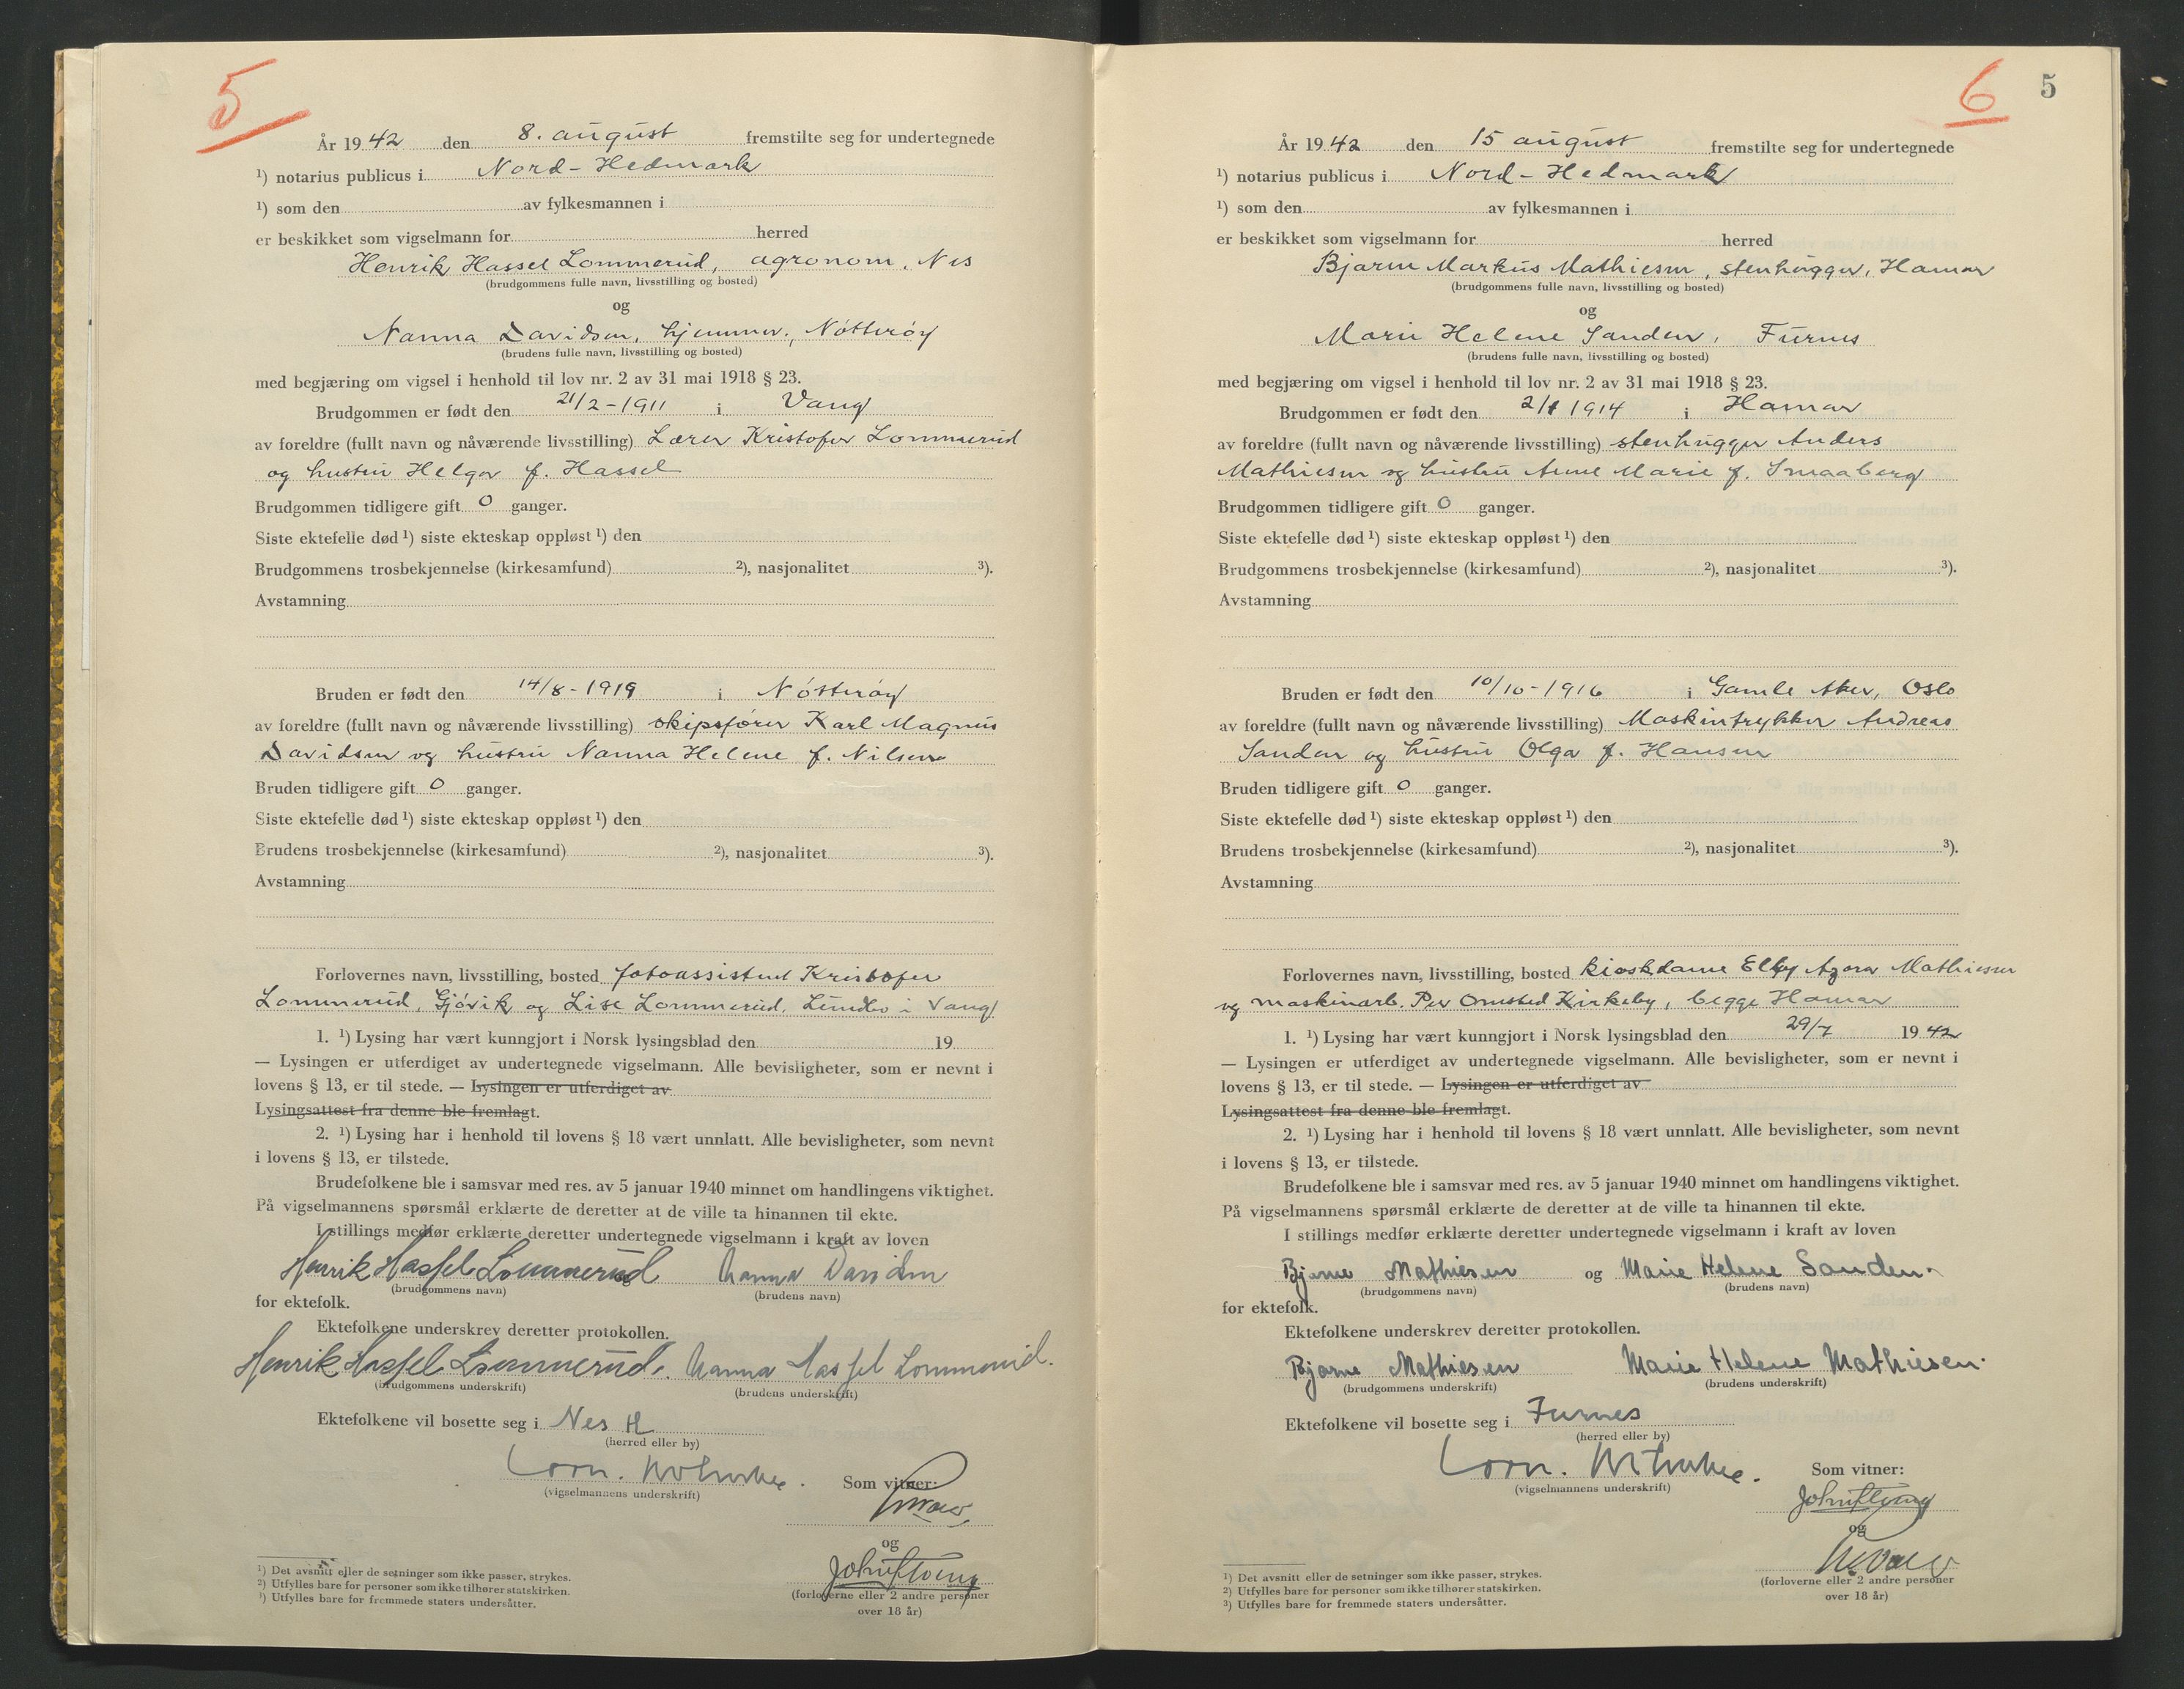 5
År 1942 den 8. august fremstilte seg for undertegnede
¹) notarius publicus i Nord-Hedmark
¹) som den av fylkesmannen i
er beskikket som vigselmann for herred
Henrik Hassel Lommerud, agronom, Nes
(brudgommens fulle navn, livsstilling og bosted)
og
Nanna Davidsen, hjemmev., Nøtterøy
(brudens fulle navn, livsstilling og bosted)
med begjæring om vigsel i henhold til lov nr. 2 av 31 mai 1918 § 23.
Brudgommen er født den 21/2-1911 i Vang
av foreldre (fullt navn og nåværende livsstilling) Lærer Kristofer Lommerud
og hustru Helga f. Hassel
Brudgommen tidligere gift 0 ganger.
Siste ektefelle død ¹) siste ekteskap oppløst ¹) den
Brudgommens trosbekjennelse (kirkesamfund) ²), nasjonalitet ³).
Avstamning
Bruden er født den 14/8-1919 i Nøtterøy
av foreldre (fullt navn og nåværende livsstilling) skipsfører Karl Magnus
Davidsen og hustru Nanna Helene f. Nilsen
Bruden tidligere gift 0 ganger.
Siste ektefelle død ¹) siste ekteskap oppløst ¹) den
Brudens trosbekjennelse (kirkesamfund) ²), nasjonalitet ³).
Avstamning
Forlovernes navn, livsstilling, bosted fotoassistent Kristofer
Lommerud, Gjøvik og Lise Lommerud, Lundbo i Vang
1. ¹) Lysing har vært kunngjort i Norsk lysingsblad den 19
— Lysingen er utferdiget av undertegnede vigselmann. Alle bevisligheter, som er nevnt i
lovens § 13, er til stede. — Lysingen er utferdiget av
Lysingsattest fra denne ble fremlagt.
2. ¹) Lysing har i henhold til lovens § 18 vært unnlatt. Alle bevisligheter, som nevnt
i lovens § 13, er tilstede.
Brudefolkene ble i samsvar med res. av 5 januar 1940 minnet om handlingens viktighet.
På vigselmannens spørsmål erklærte de deretter at de ville ta hinannen til ekte.
I stillings medfør erklærte deretter undertegnede vigselmann i kraft av loven
Henrik Hassel Lommerud Nanna Davidsen
(brudgommens navn) (brudens navn)
for ektefolk.
Ektefolkene underskrev deretter protokollen.
Henrik Hassel Lommerud. Nanna Hassel Lommerud.
(brudgommens underskrift) (brudens underskrift)
Ektefolkene vil bosette seg i Nes H
(herred eller by)
Som vitner:
(vigselmannens underskrift)
og
(forloverne eller 2 andre personer
over 18 år)
¹) Det avsnitt eller de setninger som ikke passer, strykes.
²) Utfylles bare for personer som ikke tilhører statskirken.
³) Utfylles bare for fremmede staters undersåtter.
6 5
År 1942 den 15 august fremstilte seg for undertegnede
¹) notarius publicus i Nord-Hedmark
¹) som den av fylkesmannen i
er beskikket som vigselmann for herred
Bjarne Markus Mathiesen, stenhugger, Hamar
(brudgommens fulle navn, livsstilling og bosted)
og
Marie Helene Sanden, Furnes
(brudens fulle navn, livsstilling og bosted)
med begjæring om vigsel i henhold til lov nr. 2 av 31 mai 1918 § 23.
Brudgommen er født den 1914 i Hamar
av foreldre (fullt navn og nåværende livsstilling) stenhugger Anders
Mathiesen og hustru Anne Marie f. Smaaberg
Brudgommen tidligere gift 0 ganger.
Siste ektefelle død ¹) siste ekteskap oppløst ¹) den
Brudgommens trosbekjennelse (kirkesamfund) ²), nasjonalitet ³).
Avstamning
Bruden er født den 10/10-1916 i Gamle Aker, Oslo
av foreldre (fullt navn og nåværende livsstilling) Maskintrykker Andreas
Sanden og hustru Olga f. Hansen
Bruden tidligere gift 0 ganger.
Siste ektefelle død ¹) siste ekteskap oppløst ¹) den
Brudens trosbekjennelse (kirkesamfund) ²), nasjonalitet ³).
Avstamning
Forlovernes navn, livsstilling, bosted kioskdame Mathiesen
og maskinarb. Per Omsted Kirkeby, begge Hamar
1. ¹) Lysing har vært kunngjort i Norsk lysingsblad den 29/7 1942
— Lysingen er utferdiget av undertegnede vigselmann. Alle bevisligheter, som er nevnt i
lovens § 13, er til stede. — Lysingen er utferdiget av
Lysingsattest fra denne ble fremlagt.
2. ¹) Lysing har i henhold til lovens § 18 vært unnlatt. Alle bevisligheter, som nevnt
i lovens § 13, er tilstede.
Brudefolkene ble i samsvar med res. av 5 januar 1940 minnet om handlingens viktighet.
På vigselmannens spørsmål erklærte de deretter at de ville ta hinannen til ekte.
I stillings medfør erklærte deretter undertegnede vigselmann i kraft av loven
Bjarne Mathiesen og Marie Helene Sanden
(brudgommens navn) (brudens navn)
for ektefolk.
Ektefolkene underskrev deretter protokollen.
Bjarne Mathiesen Marie Helene Mathiesen.
(brudgommens underskrift) (brudens underskrift)
Ektefolkene vil bosette seg i Furnes
(herred eller by)
Som vitner:
(vigselmannens underskrift)
og
(forloverne eller 2 andre personer
over 18 år)
¹) Det avsnitt eller de setninger som ikke passer, strykes.
²) Utfylles bare for personer som ikke tilhører statskirken.
³) Utfylles bare for fremmede staters undersåtter.